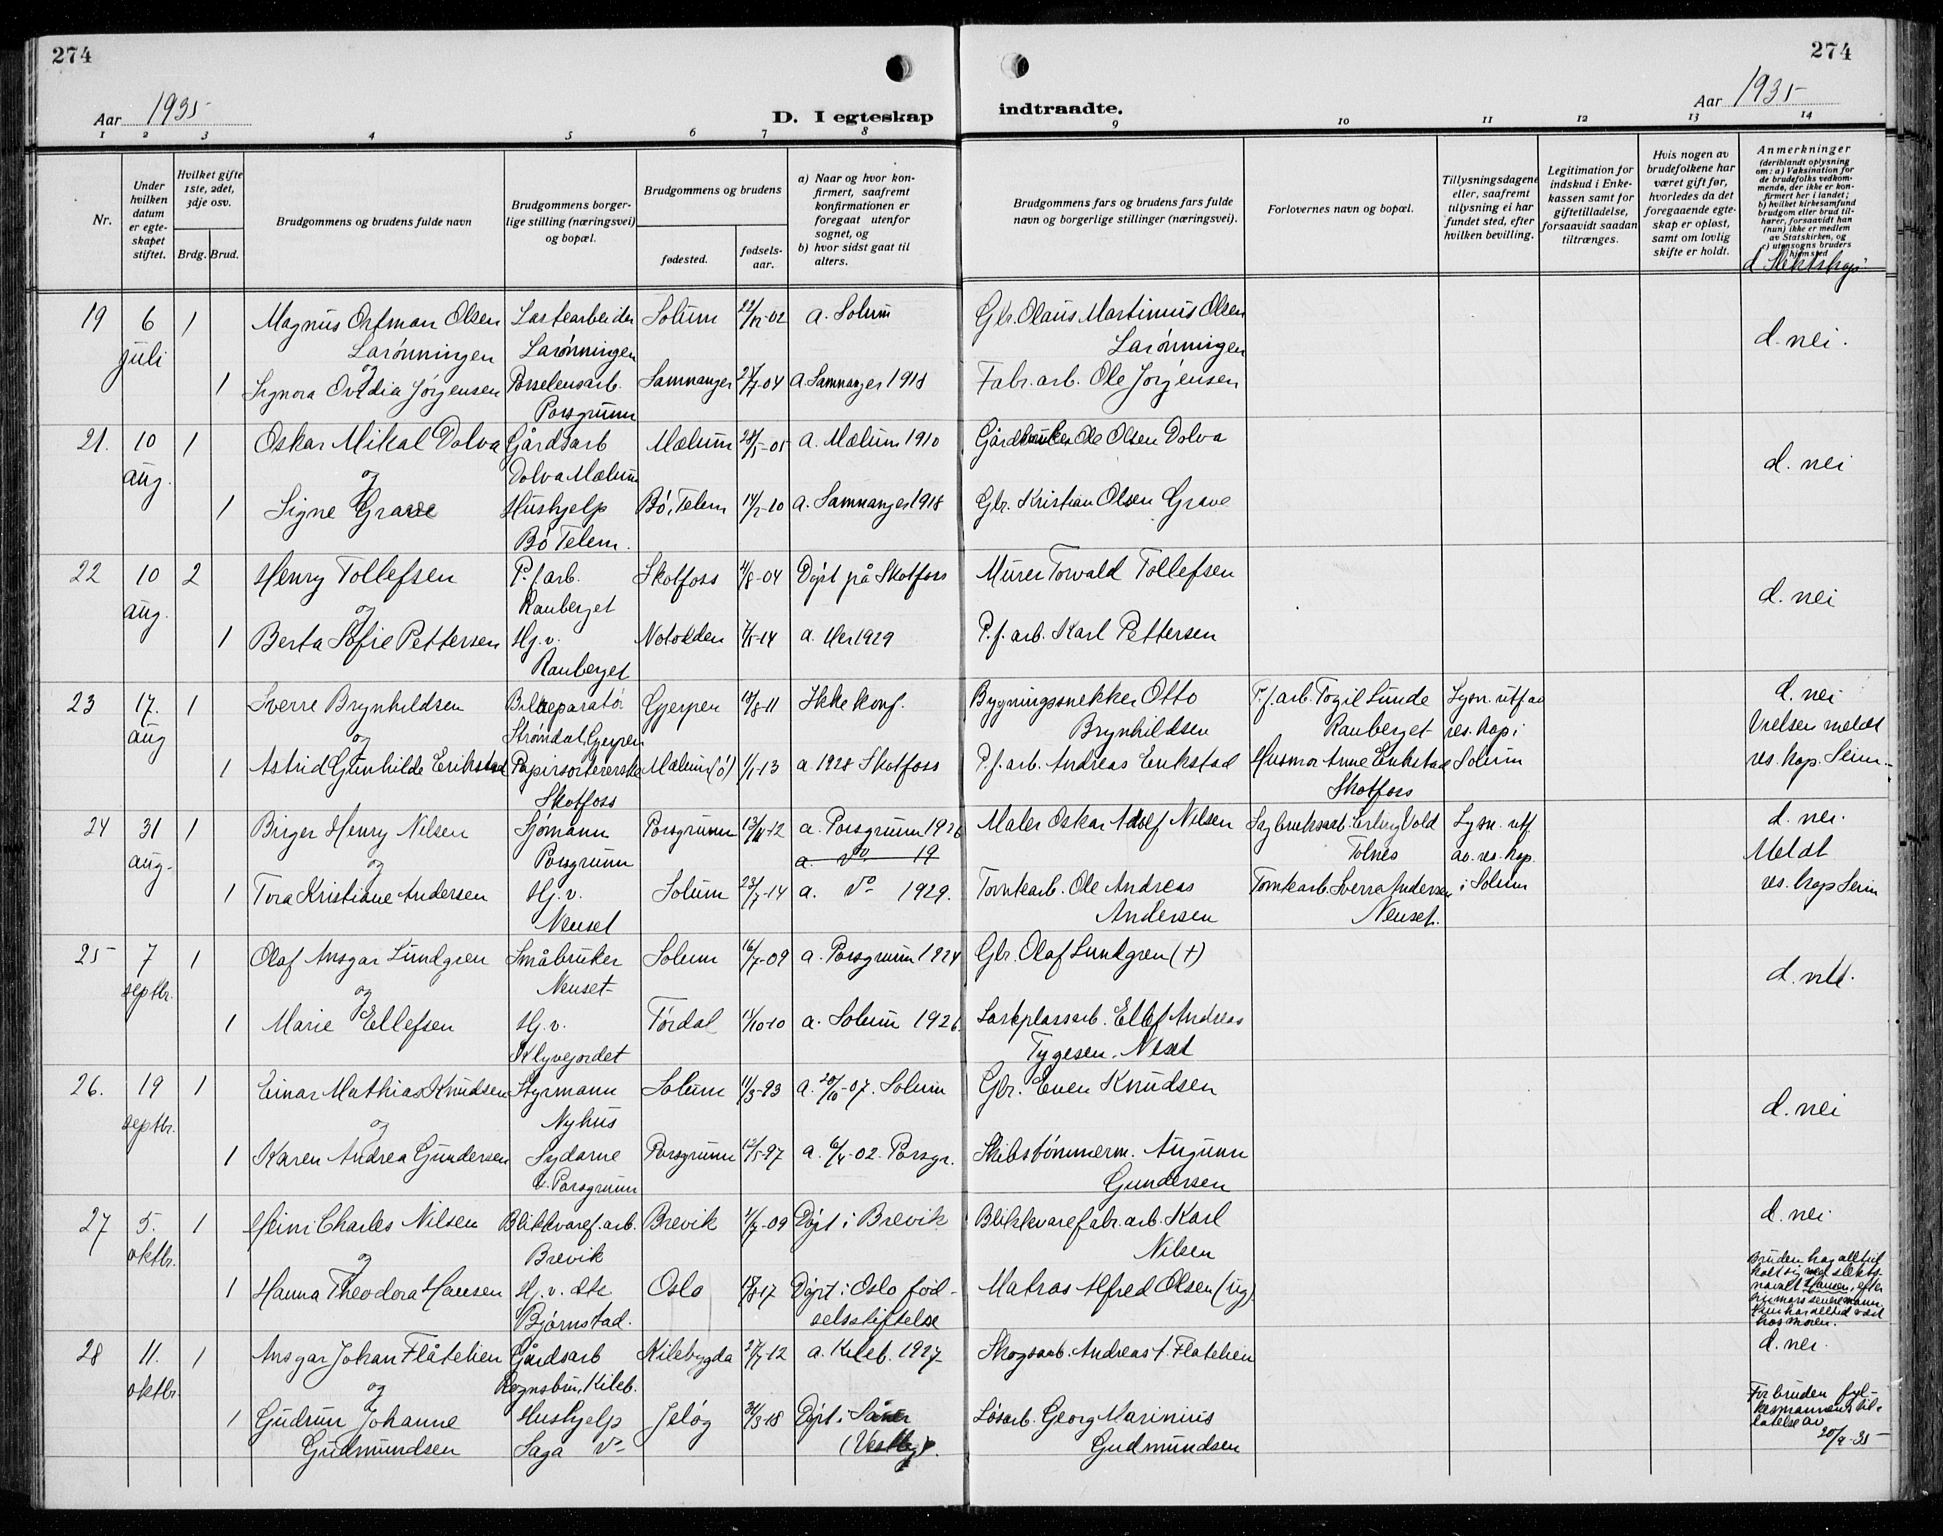 274
274
Aar 1935
D. I egteskap indtraadte.
Aar 1935
1 2 3 4 5 6 7 8 9 10 11 12 13 14
Nr.
Under hvilken datum er egteskapet stiftet.
Hvilket gifte 1ste, 2det, 3dje osv.
Brdg. Brud.
Brudgommens og brudens fulde navn
Brudgommens borgerlige stilling (næringsvei) og bopæl.
Brudgommens og brudens
fødested.
fødselsaar.
a) Naar og hvor konfirmert, saafremt konfirmationen er foregaat utenfor sognet, og
b) hvor sidst gaat til alters.
Brudgommens fars og brudens fars fulde navn og borgerlige stillinger (næringsvei).
Forlovernes navn og bopæl.
Tillysningsdagene eller, saafremt tillysning ei har fundet sted, efter hvilken bevilling.
Legitimation for indskud i Enkekassen samt for giftetilladelse, forsaavidt saadan tiltrænges.
Hvis nogen av brudefolkene har været gift før, hvorledes da det foregaaende egteskap er opløst, samt om lovlig skifte er holdt.
Anmerkninger (deriblandt oplysning om: a) Vaksination for de brudefolks vedkommende, der ikke er konfirmert her i landet; b) hvilket kirkesamfund brudgom eller brud tilhører, forsaavidt han (hun) ikke er medlem av Statskirken, og c) utensogns bruders hjemsted
d. Slektskap
19 6 1 Magnus Ortman Olsen Lastearbeider Solum 22/12-02 a. Solum Gbr. Olaus Martinius Olsen
juli Larønningen Larønningen Larønningen d. nei.
og
1 Signora Ovidia Jørgensen Porselensarb. Samnanger 24/7-04 a. Samnanger 1918 Fabr. arb. Ole Jørgensen
Porsgrunn
21. 10 1 Oskar Mikal Dolva Gårdsarb Mælum 28/5-05 a. Mælum 1910 Gårdbruker Ole Olsen Dolva
aug. og Dolva Mælum d. nei
1 Signe Grave Hushjelp Bø, Telem 14/2-10 a. Samnanger 1918 Gbr. Kristian Olsen Grave
Bø Telem.
22 10 2 Henry Tollefsen P.f. arb. Skotfoss 2/8-04 Døpt på Skotfoss Murer Torvald Tollefsen
aug. og Rauberget d. nei
1 Berta Sofie Pettersen Hj. v. Notodden 7/5-14 a. Her 1929 P.f. arb. Karl Pettersen
Rauberget
23 17. 1 Sverre Brynhildsen Bilreparatør Gjerpen 10/8-11 Ikke konf. Bygningssnekker Otto P.f. arb. Torgil Lunde Lysn. utf av d. nei
aug og Strømdal, Gjerpen Brynhildsen Rauberget res. kap i Vielsen meldt
1 Astrid Gunhilde Erikstad Papirsortererske Mælum (ø) 1/1-13 a. 1928 Skotfoss P.f. arb. Andreas Erikstad Husmor Anne Erikstad Solum res. kap. Seim
Skotfoss Skotfoss
24 31 1 Birger Henry Nilsen Sjømann Porsgrunn 13/11-12 a. Porsgrunn 1926 Maler Oskar Adolf Nilsen Sagbruksarb. Erling Vold Lysn. utf. d. nei.
aug. og Porsgrunn a. do 19 Tolnes av. res. kap. Meldt
1 Tora Kristiane Andersen Hj. v. Solum 23/7-14 a. do 1929. Tomtearb. Ole Andreas Tomtearb. Sverre Andersen i Solum res. kap Seim
Nenset Andersen Nenset.
25 7 1 Olaf Ansgar Lundgren Småbruker Solum 16/7-09 a. Porsgrunn 1924 Gbr. Olaf Lundgren (+)
septbr. og Nenset d. nei.
1 Marie Ellefsen Hj. v. Tørdal 11/10-10 a. Solum 1926. Lasteplassarb. Ellef Andreas
Klyvejordet Tygesen.
26. 19 1 Einar Mathias Knudsen Styrmann Solum 11/3-93 a. 20/10-07. Solum Gbr. Even Knudsen
septbr. og Nyhus d. nei
1 Karen Andrea Gundersen Sydame Porsgrunn 12/5-97 a. 6/4-02. Porsgr. Skibstømmerm. Augunn
v. Porsgrunn Gundersen
27 5. 1 Heini Charles Nilsen Blikkvaref. arb. Brevik 1/7-09 Døpt i Brevik Blikkvarefabr. arb. Karl d. nei
oktbr. og Brevik Nilsen
1 Hanna Theodora Hansen Hj. v. dtr Oslo 18/8-17 Døpt i Oslo fød- Matros Alfred Olsen (ug).
Bjørnstad. selsstiftelse
Bruden har alltid kalt sig med slektsnavnet Hansen, efter sin mors senere mann. Hun har alltid vært hos moren.
28 11. 1 Ansgar Johan Flåtelien Gårdsarb Kilebygda 27/7-12 a. Kileb. 1927 Skogsarb. Andreas A. Flatelien d. nei.
oktbr. og Rognsbru, Kileb.
1 Gudrun Johanne Hushjelp Jeløy 31/3-18 Døpt i Såner Løsarb. Georg Marinius
Gudmundsen Saga do (Vestby). Gudmundsen
For bruden fylkesmannens tillatelse av 20/9-35